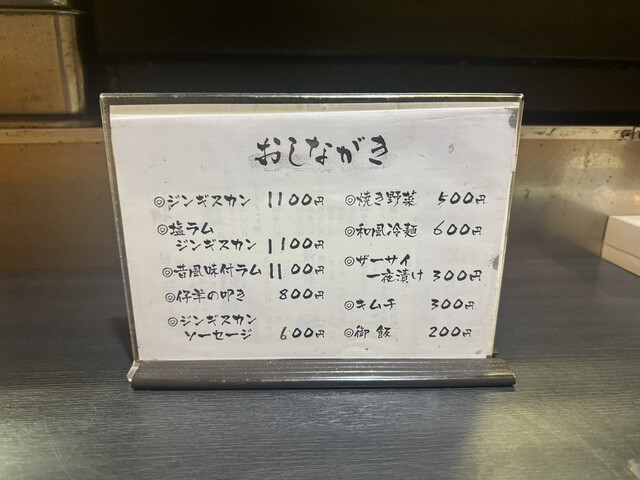 おしながき
◎ジンギスカン 1100円
◎塩ラム
ジンギスカン 1100円
◎昔風味付ラム 1100円
◎仔羊の叩き 800円
◎ジンギスカン
ソーセージ 600円
◎焼き野菜 500円
◎和風冷麺 600円
◎ザーサイ
一夜漬け 300円
◎キムチ 300円
◎御飯 200円